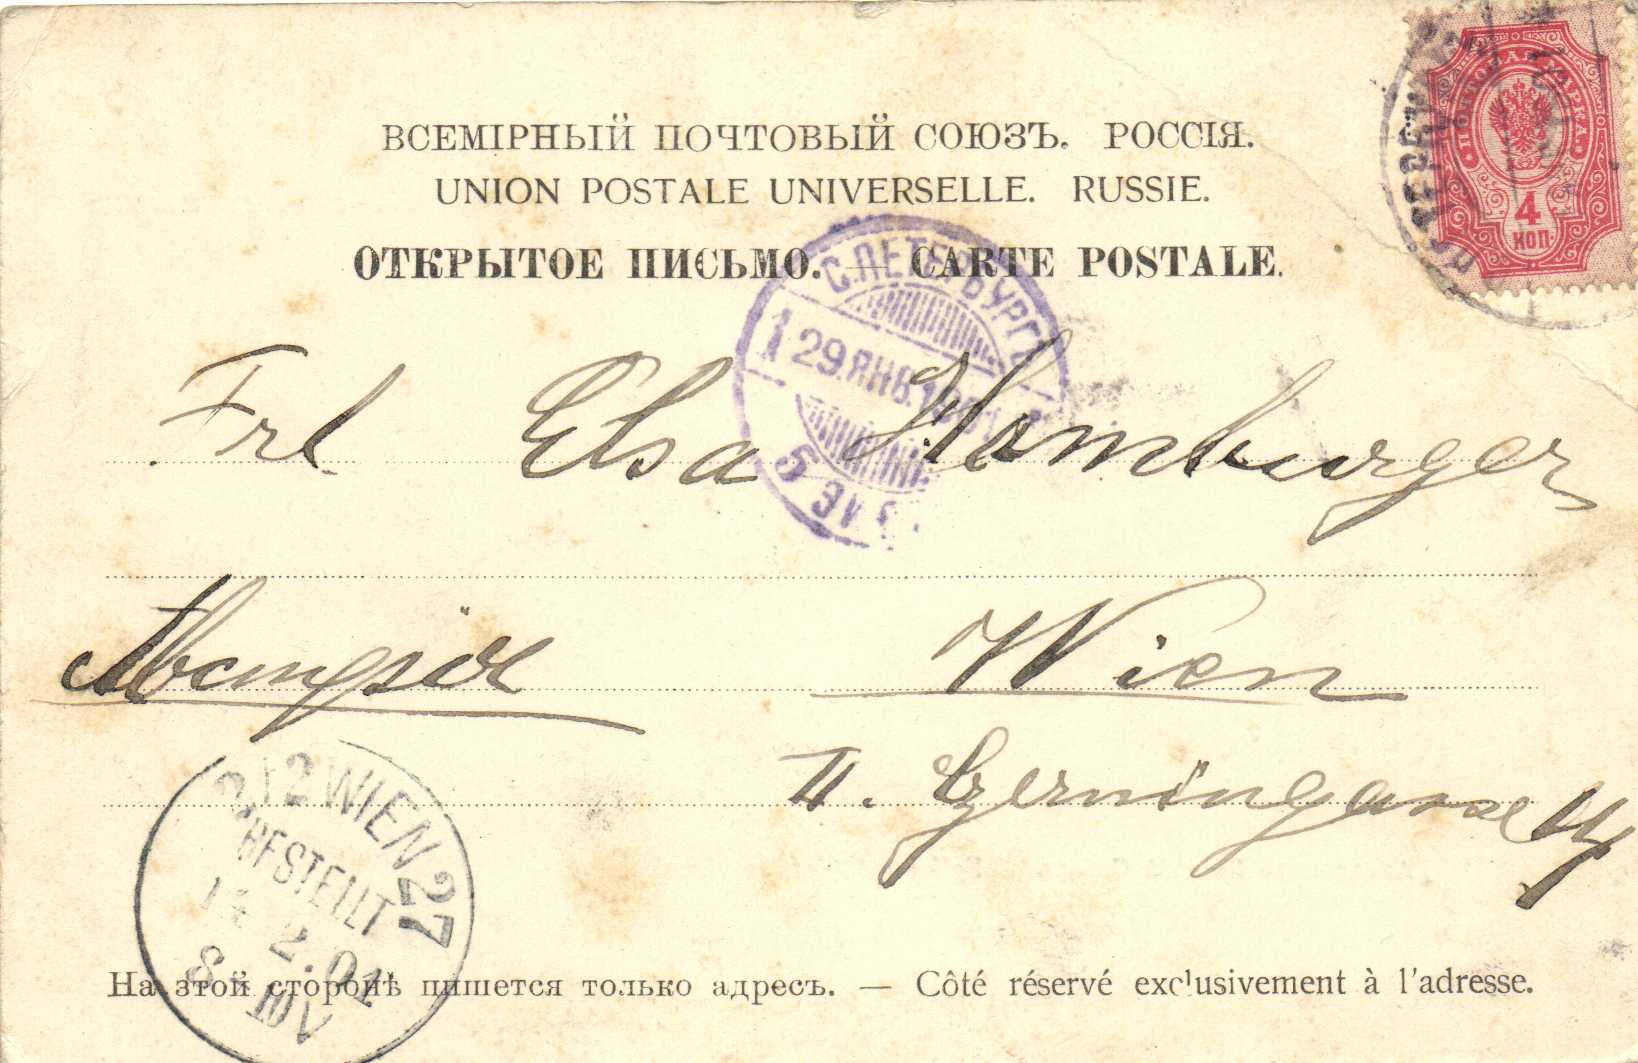 ВСЕМІРНЫЙ ПОЧТОВЫЙ СОЮЗЪ. РОССІЯ.
UNION POSTALE UNIVERSELLE. RUSSIE.
ОТКРЫТОЕ ПИСЬМО. — CARTE POSTALE.
ПОЧТОВАЯ МАРКА
4
КОП.
С.ПЕТЕРБУРГЪ
1 29.ЯНВ.1901
5 Э
Frl Elsa Homburger
Австрія Wien
II. Czerningasse 4
2/2 WIEN 27
BESTELLT
2.01
8
На этой сторонѣ пишется только адресъ. — Côté réservé exclusivement à l'adresse.